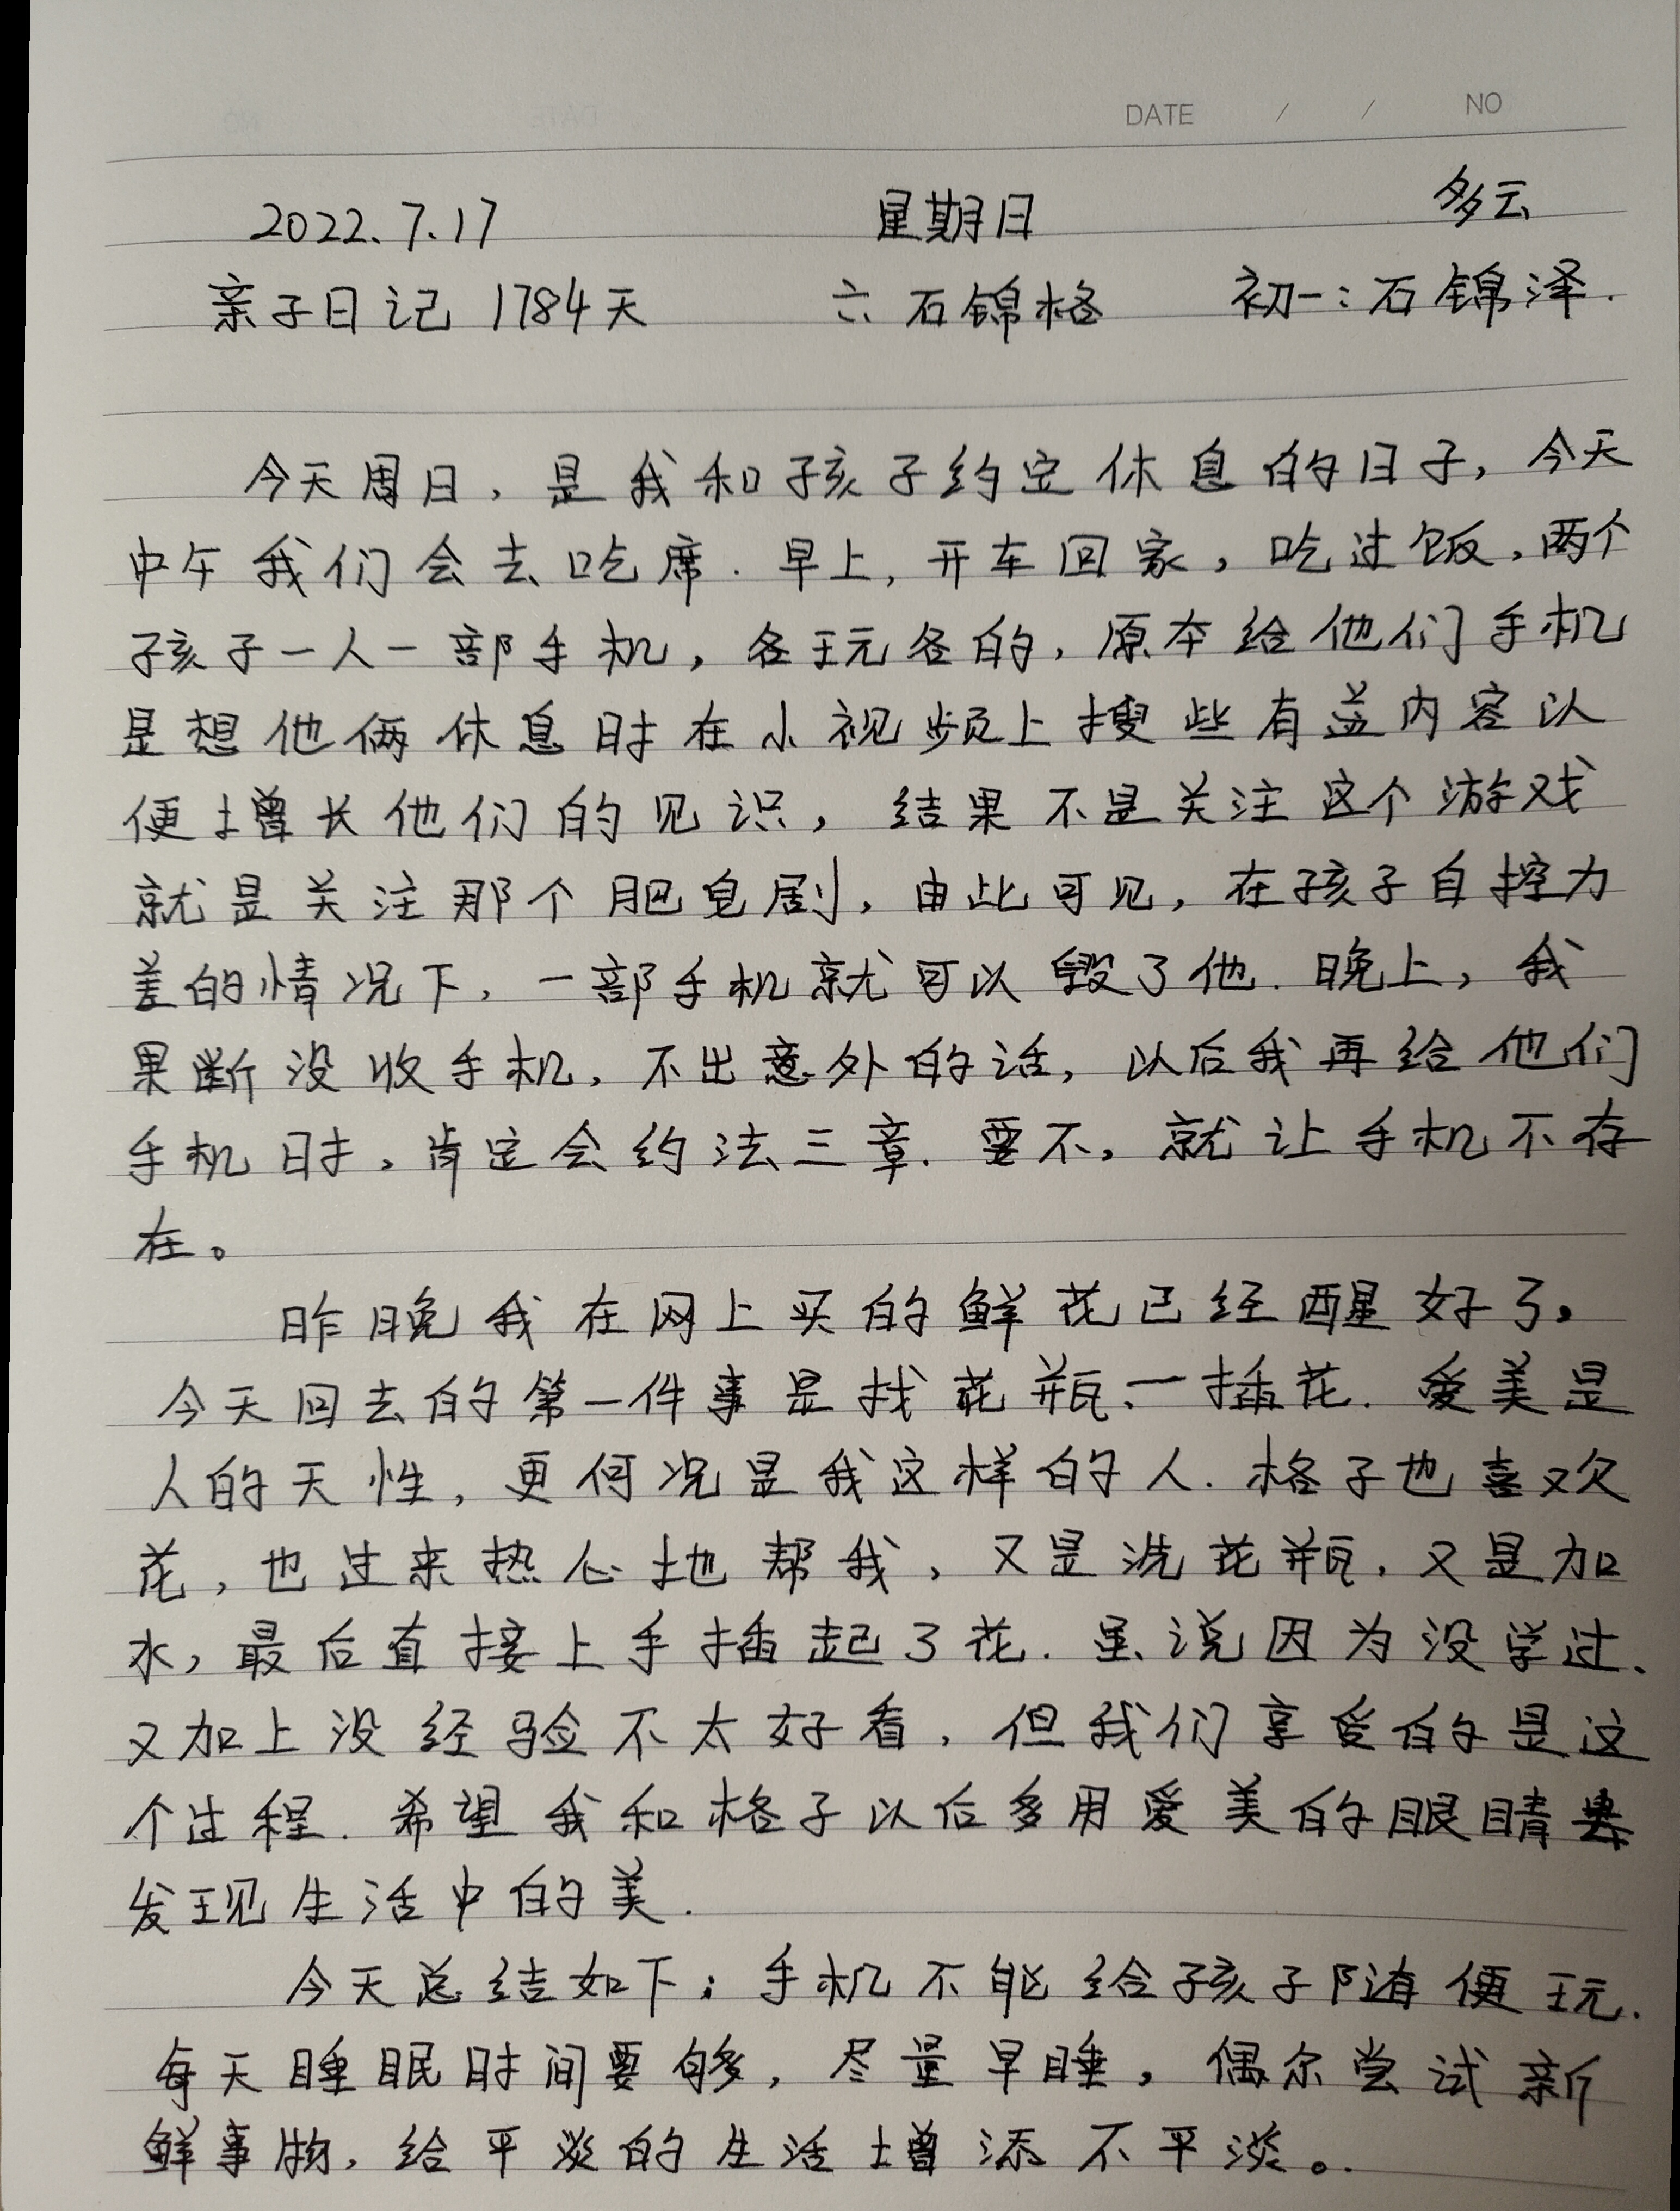 DATE / / NO
2022.7.17 星期日 多云
亲子日记 1784天 六:石锦格 初一:石锦泽.
今天周日，是我和孩子约定休息的日子，今天
中午我们会去吃席.早上，开车回家，吃过饭，两个
孩子一人一部手机，各玩各的，原本给他们手机
是想他俩休息时在小视频上搜些有益内容以
便增长他们的见识，结果不是关注这个游戏
就是关注那个肥皂剧，由此可见，在孩子自控力
差的情况下，一部手机就可以毁了他.晚上，我
果断没收手机，不出意外的话，以后我再给他们
手机时，肯定会约法三章.要不，就让手机不存
在。
昨晚我在网上买的鲜花已经醒好了，
今天回去的第一件事是找花瓶、一插花.爱美是
人的天性，更何况是我这样的人.格子也喜欢
花，也过来热心地帮我，又是洗花瓶，又是加
水，最后直接上手插起了花.虽说因为没学过、
又加上没经验不太好看，但我们享受的是这
个过程.希望我和格子以后多用爱美的眼睛去
发现生活中的美.
今天总结如下；手机不能给孩子随便玩.
每天睡眠时间要够，尽量早睡，偶尔尝试新
鲜事物，给平淡的生活增添不平淡。.